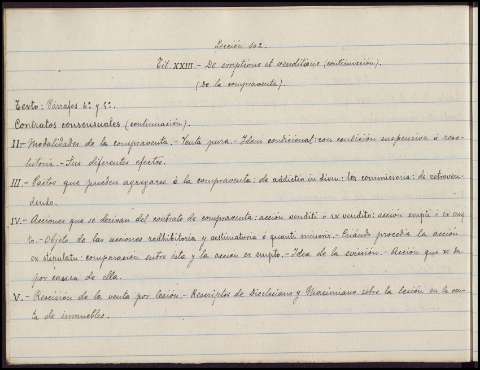 Lección 102.
Tit. XXIII.- De emptione et venditione (continuación).
(De la compraventa).
Texto: Párrafos 4º y 5º.
Contratos consensuales (continuación).
II.- Modalidades de la compraventa.- Venta pura.- Idem condicional: con condición suspensiva ó reso-
lutoria.- Sus diferentes efectos.
III.- Pactos que pueden agregarse á la compraventa: de addictio in diem: lex commissoria: de retroven-
dendo.
IV.- Acciones que se derivan del contrato de compraventa: acción venditi ó ex vendito: acción empti ó ex emp-
to.- Objeto de las acciones redhibitoria y estimatoria ó quanti minoris.- Cuándo procedía la acción
ex stipulatu: comparación entre ésta y la acción ex empto.- Idea de la evicción.- Acción que se da
por causa de ella.
V.- Rescisión de la venta por lesión.- Rescriptos de Diocleciano y Maximiano sobre la lesión en la ven-
ta de inmuebles.